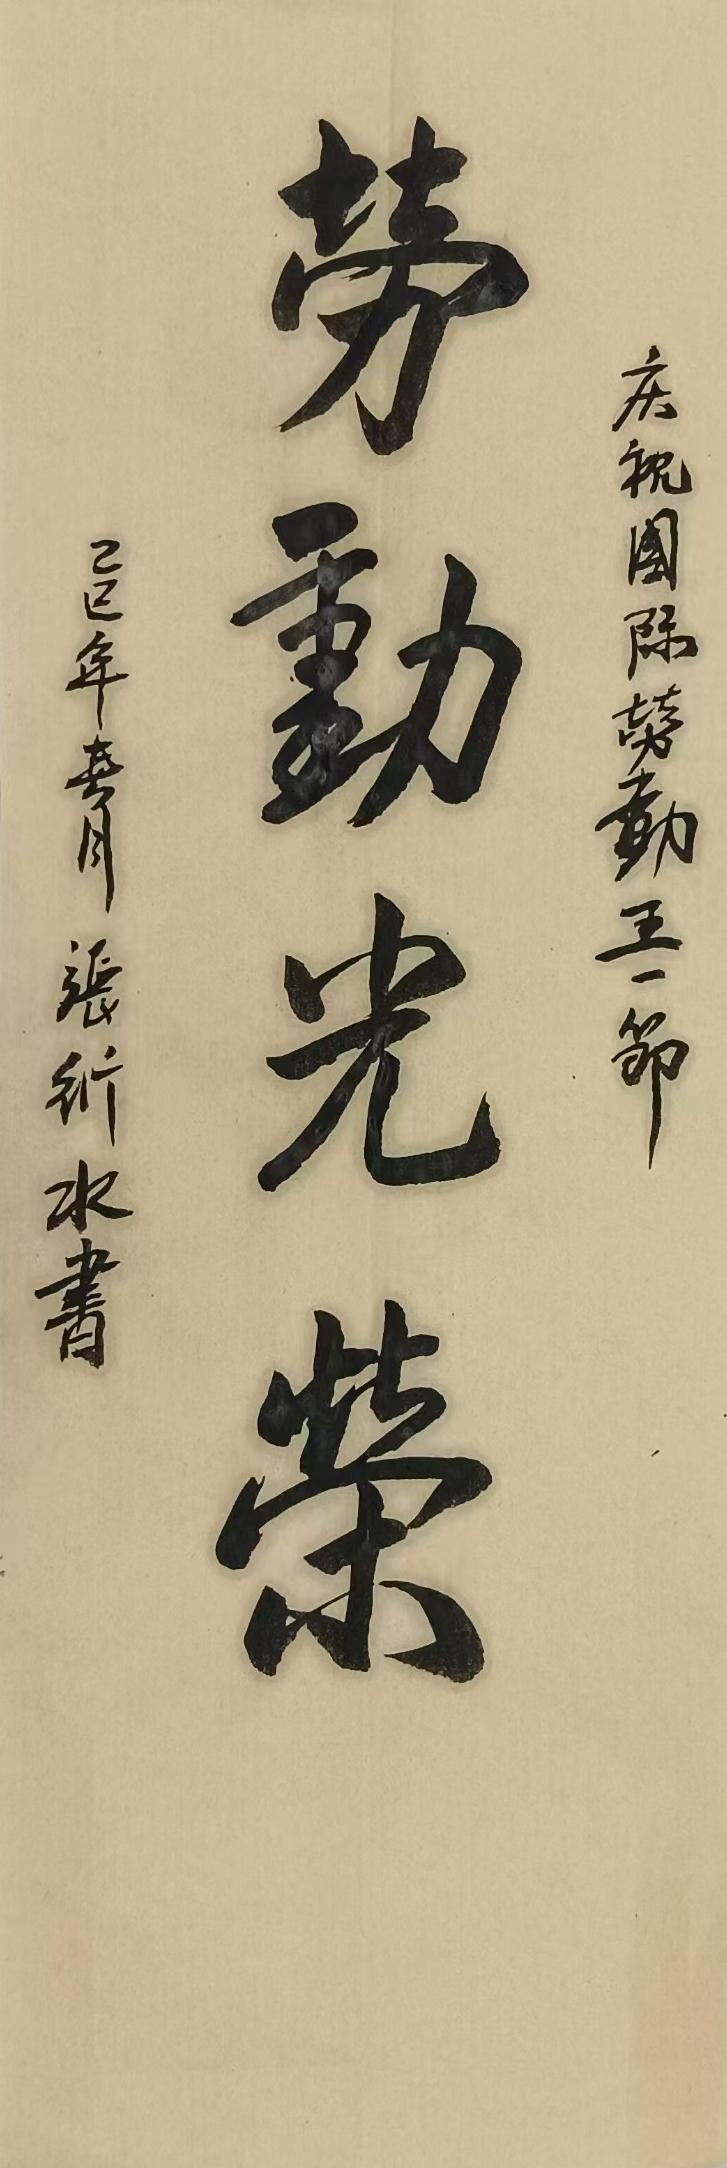 庆祝国际劳動五一節
劳動光榮
乙巳年春月張衍水書